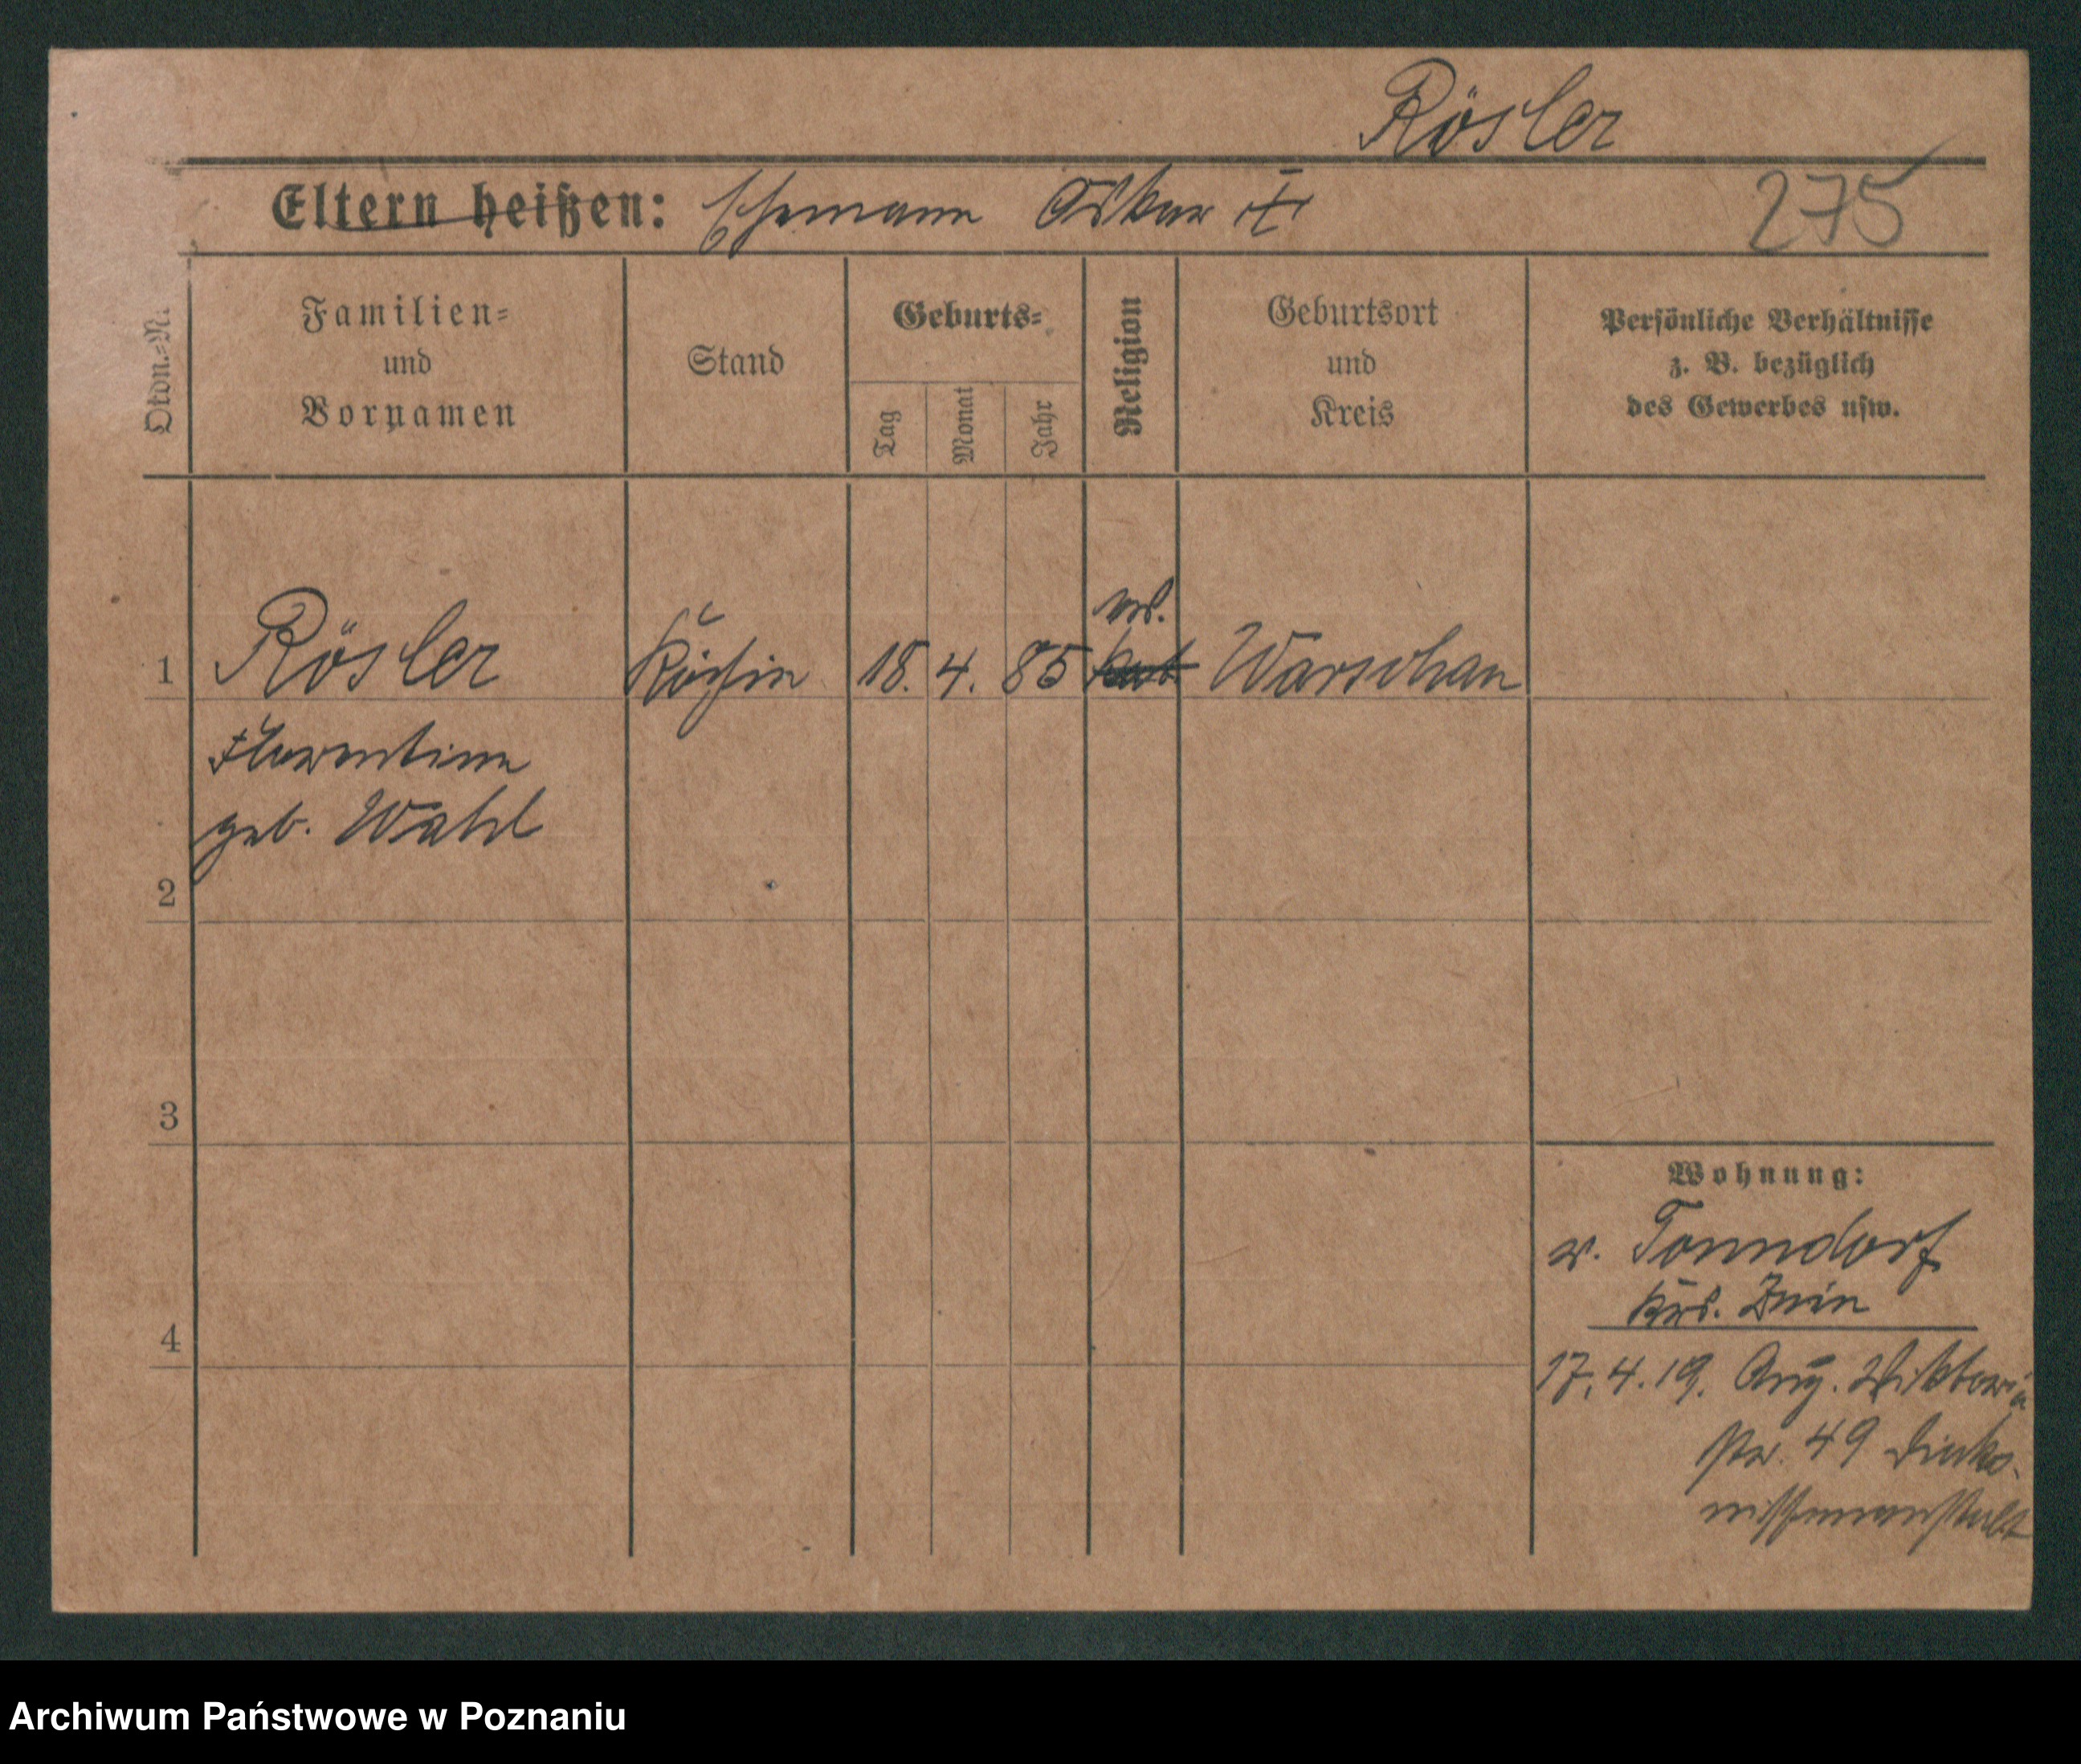 Rösler
Eltern heißen: Ehemann Oskar ±
275
Ordn.-N.
Familien-
und
Vornamen
Stand
Geburts-
Tag
Monat
Jahr
Religion
Geburtsort
und
Kreis
Persönliche Verhältnisse
z. B. bezüglich
des Gewerbes usw.
ev.
1 Rösler Köchin 18. 4. 85 kat Warschau
Florentine
geb. Wahl
2
3
Wohnung:
v. Tonndorf
Krs. Znin
4
17.4.19. Aug. Viktoria
str. 49 Diako-
nissenanstalt
Archiwum Państwowe w Poznaniu